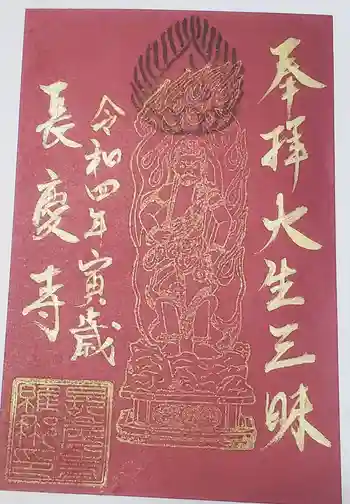 奉拝大生三昧
令和四年寅歳
長慶寺